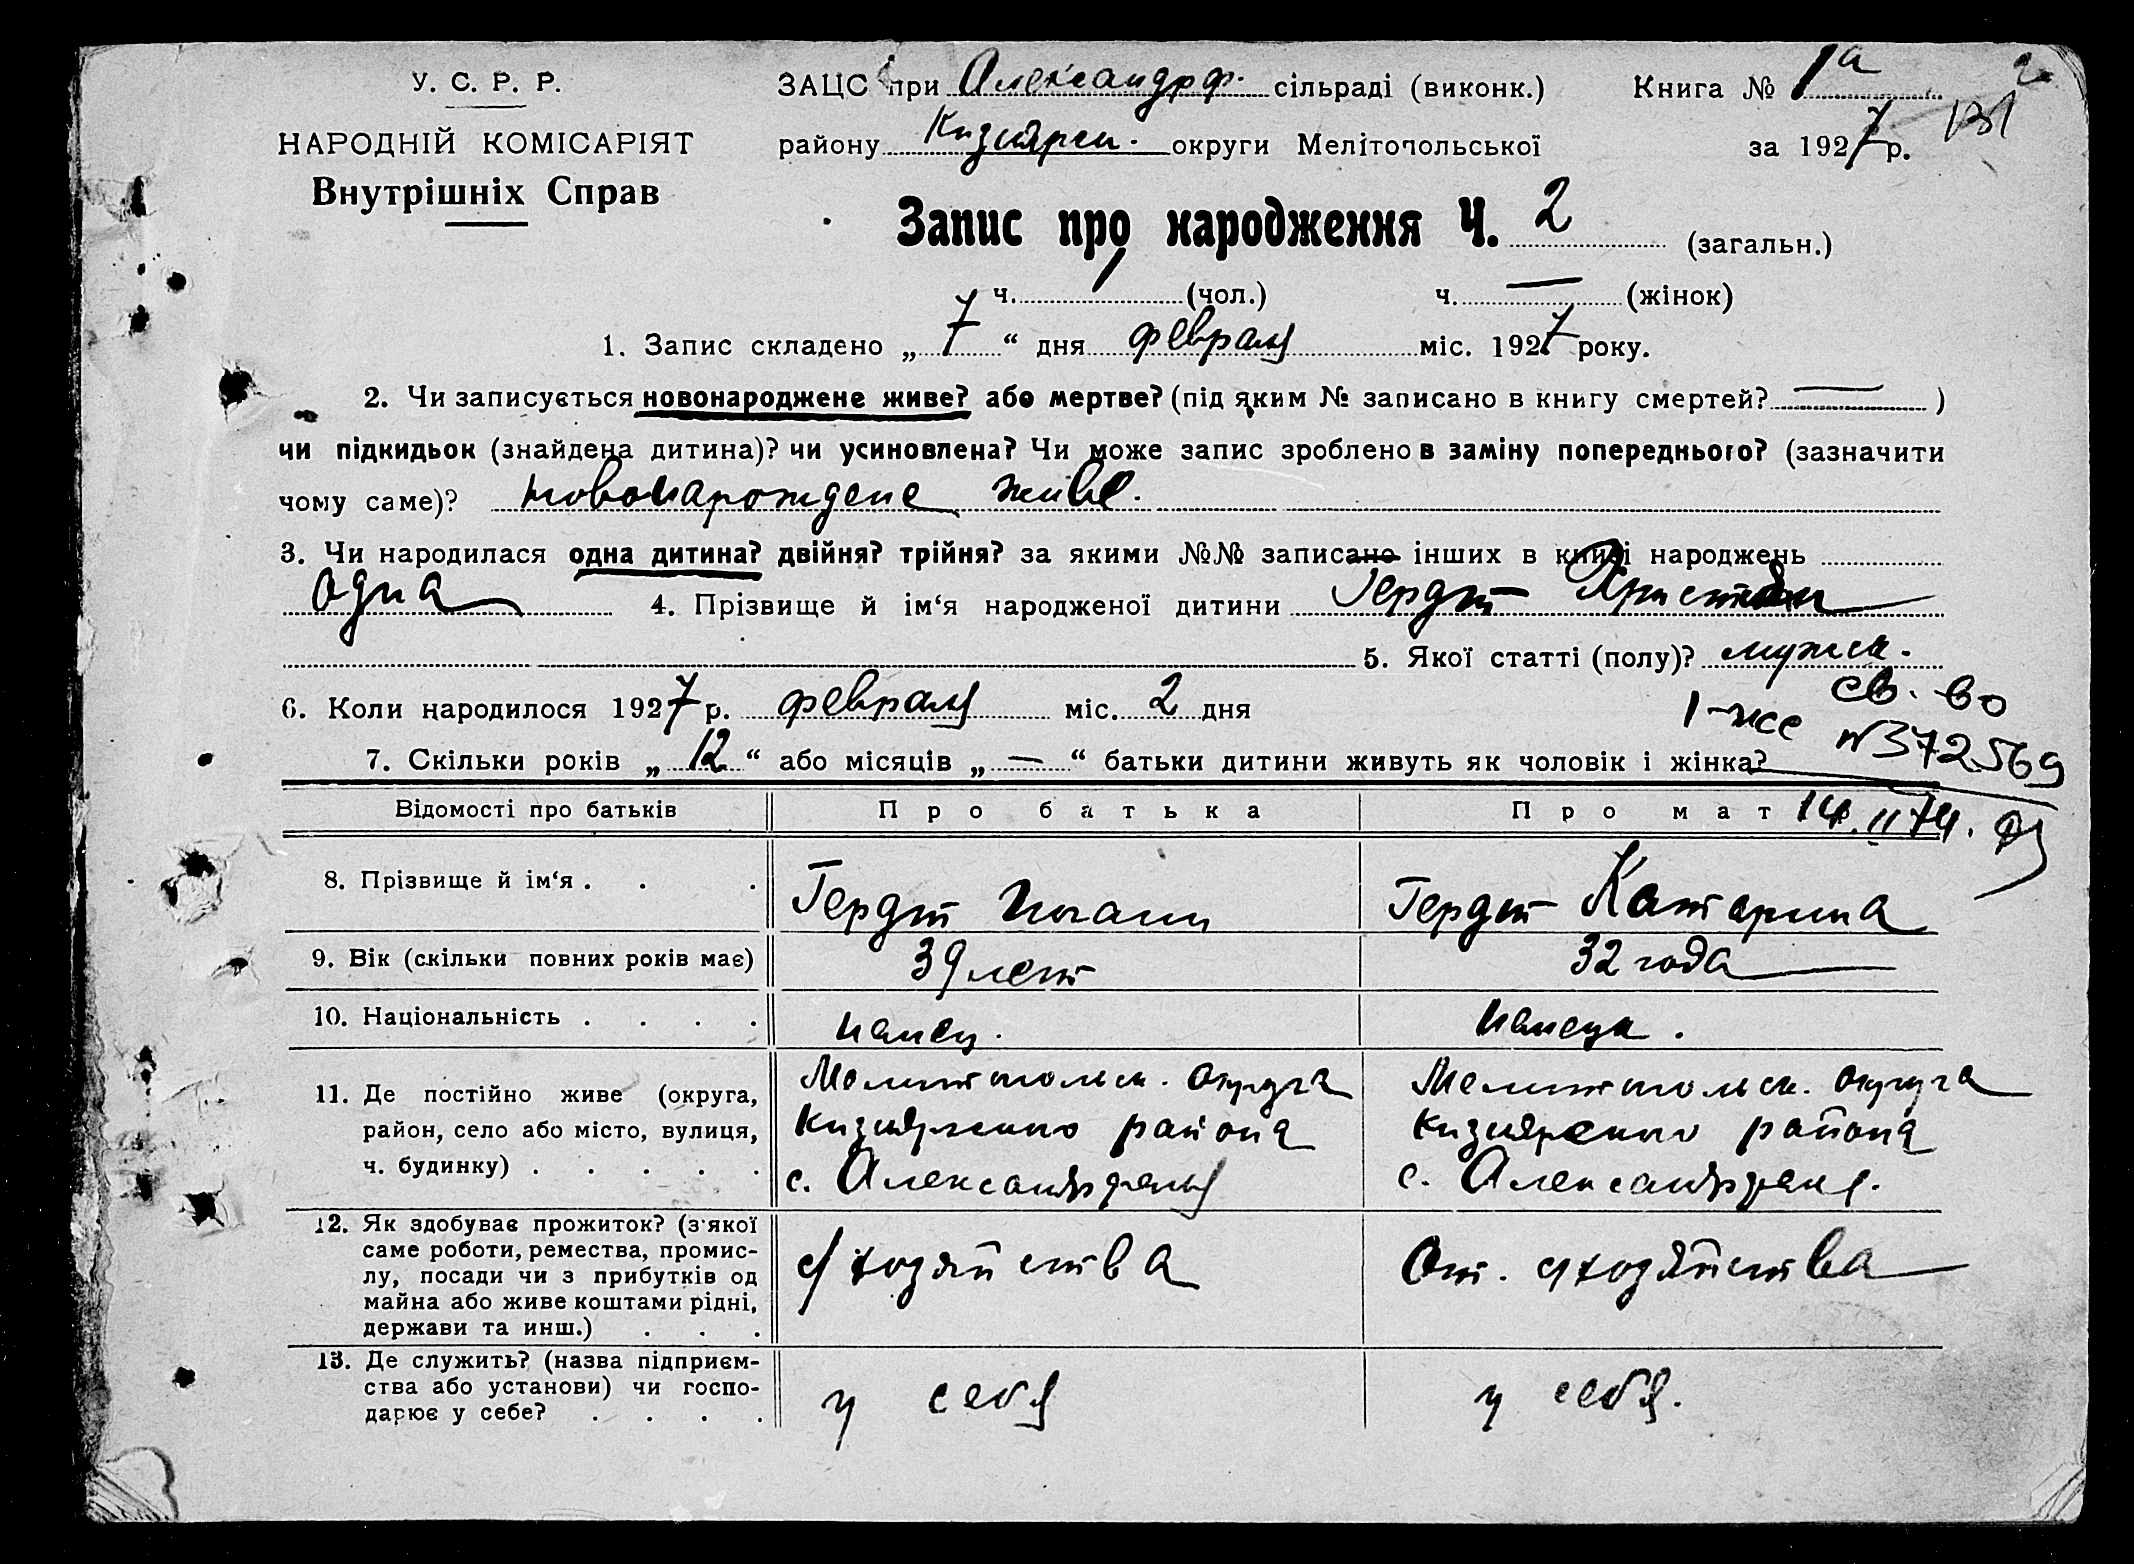 У. С. Р. Р.
НАРОДНІЙ КОМІСАРІЯТ
Внутрішніх Справ
ЗАЦС при Александрф. сільраді (виконк.) Книга № 1а
району Кизиярск. округи Мелітопольської за 1927 р. 131
Запис про народження Ч. 2 (загальн.)
ч. 1 (чол.) ч. — (жінок)
1. Запис складено „ 7 “ дня февраля міс. 1927 року.
2. Чи записується новонароджене живе? або мертве? (під яким № записано в книгу смертей? — )
чи підкидьок (знайдена дитина)? чи усиновлена? Чи може запис зроблено в заміну попереднього? (зазначити
чому саме)? новонарождене живе.
3. Чи народилася одна дитина? двійня? трійня? за якими №№ записано інших в книзі народжень
одна 4. Прізвище й ім‘я народженої дитини Гердт Христиан
5. Якої статті (полу)? мужск.
6. Коли народилося 1927 р. февраля міс. 2 дня
св. во
1-же № 372569
7. Скільки років „ 12 “ або місяців „ — “ батьки дитини живуть як чоловік і жінка?
14.II 74.
Відомості про батьків Про батька Про мат
8. Прізвище й ім‘я . . . Гердт Иоганн Гердт Катарина
9. Вік (скільки повних років має) 39 лет 32 года
10. Національність . . . . немец. немецк.
11. Де постійно живе (округа, Мелитопольск. округа Мелитопольск. округа
район, село або місто, вулиця, Кизиярского района Кизиярского района
ч. будинку) . . . . . с. Александрфельд с. Александрфельд.
12. Як здобуває прожиток? (з‘якої
саме роботи, ремества, промис-
лу, посади чи з прибутків од с/хозяйства От. с/хозяйства
майна або живе коштами рідні,
держави та инш.) . . .
13. Де служить? (назва підприєм-
ства або установи) чи госпо- у себя у себя.
дарює у себе? . . . .